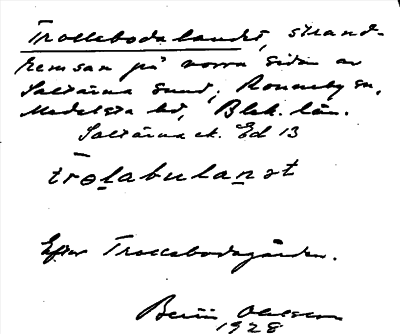 Trollebodalandet, strand-
remsan på norra sidan av
Saltärna sund, Ronneby sn,
Medelsta hd, Blek. län.
Saltärna ek. Ed 13
trɵlabulanət
Efter Trollebodagården.
1928